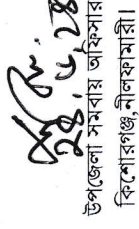 ২৪.৬.২৪
উপজেলা সমবায় অফিসার
কিশোরগঞ্জ,নীলফামারী।